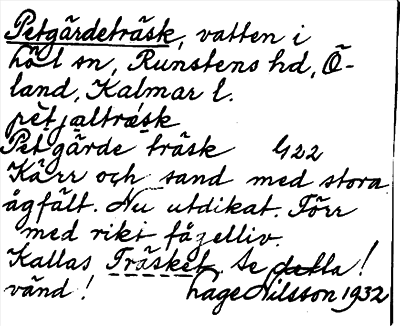 Petgärdeträsk, vatten i
Löt sn, Runstens hd, Ö-
land, Kalmar l.
pètjaltràsk
Petgärde träsk G22
Kärr och sand med stora
ågfält. Nu utdikat. Förr
med rikt fågelliv.
Kallas Träsket. Se detta!
vänd! Lage Nilsson 1932